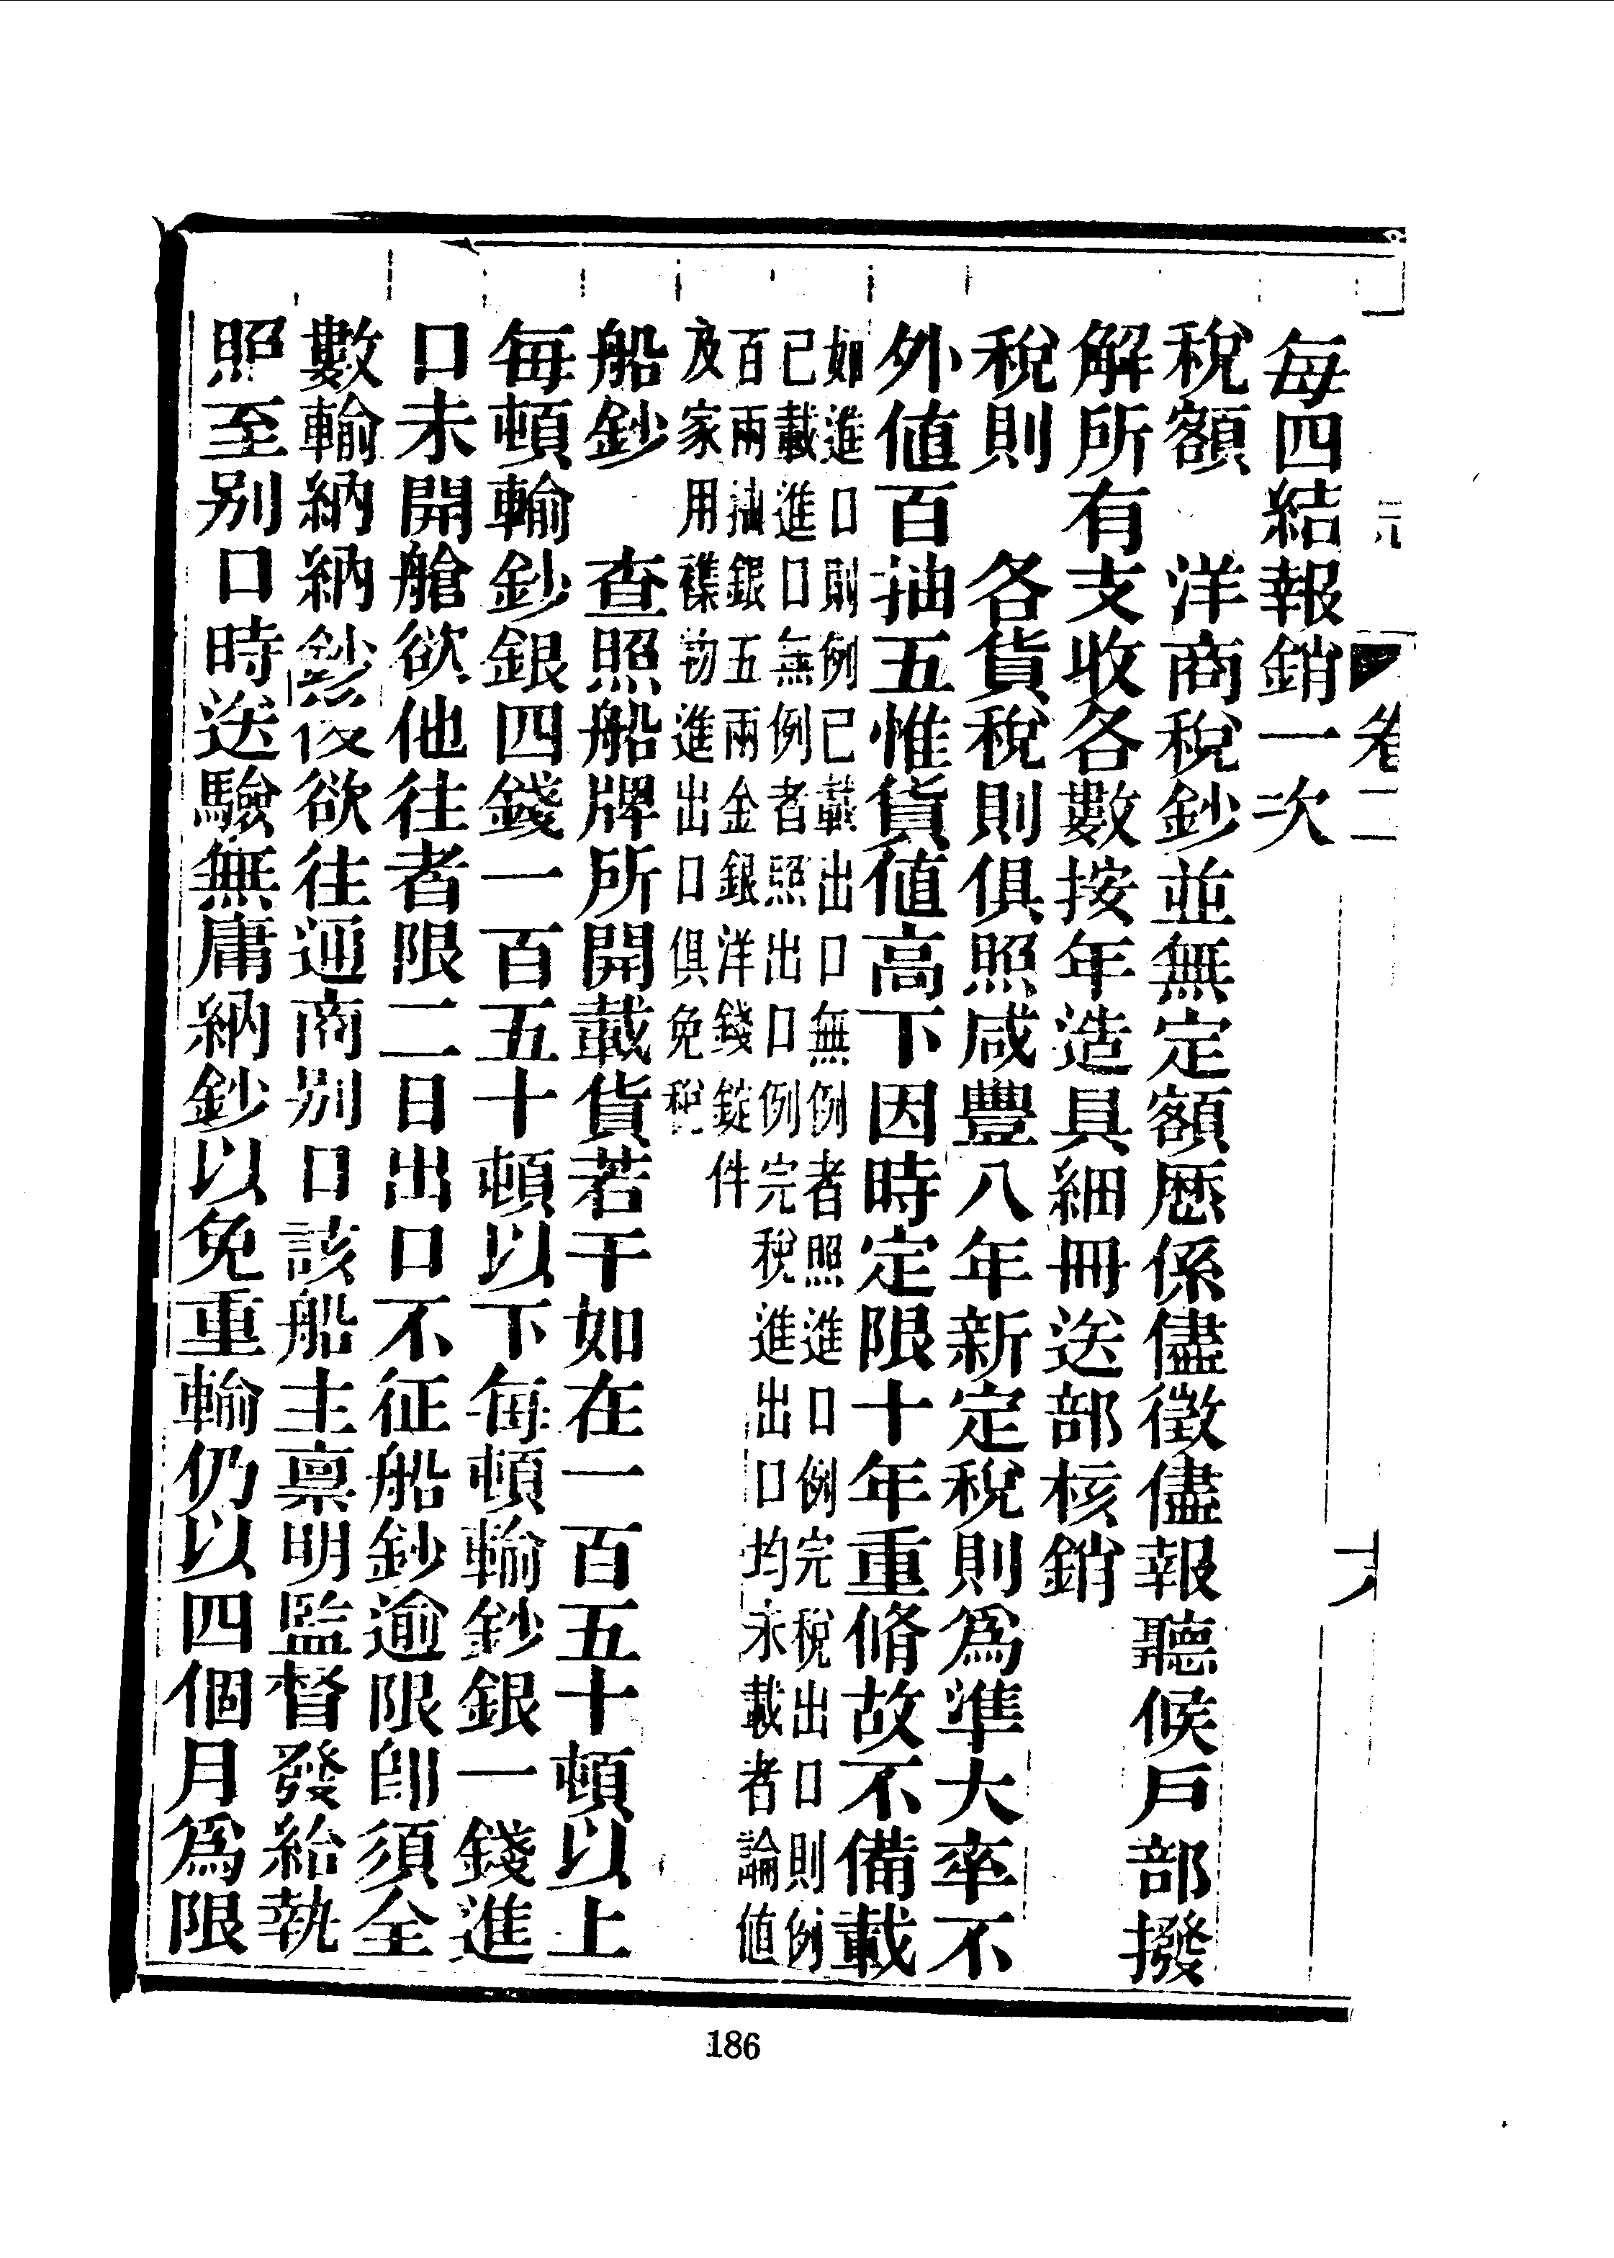 卷二
每四結報銷一次
稅額　洋商稅鈔並無定額歷係儘徵儘報聽候戶部撥
解所有支收各數按年造具細冊送部核銷
稅則　各貨稅則俱照咸豐八年新定稅則爲準大率不
外値百抽五惟貨値高下因時定限十年重脩故不備載
如進口則例已載出口無例者照進口例完稅出口則例
已載進口無例者照出口例完稅進出口均未載者論値
百兩抽銀五兩金銀洋錢錠件
及家用襍物進出口俱免稅
船鈔　查照船牌所開載貨若干如在一百五十頓以上
每頓輸鈔銀四錢一百五十頓以下每頓輸鈔銀一錢進
口未開艙欲他往者限二日出口不征船鈔逾限卽須全
數輸納納鈔後欲往通商別口該船主禀明監督發給執
照至別口時送驗無庸納鈔以免重輸仍以四個月爲限
186